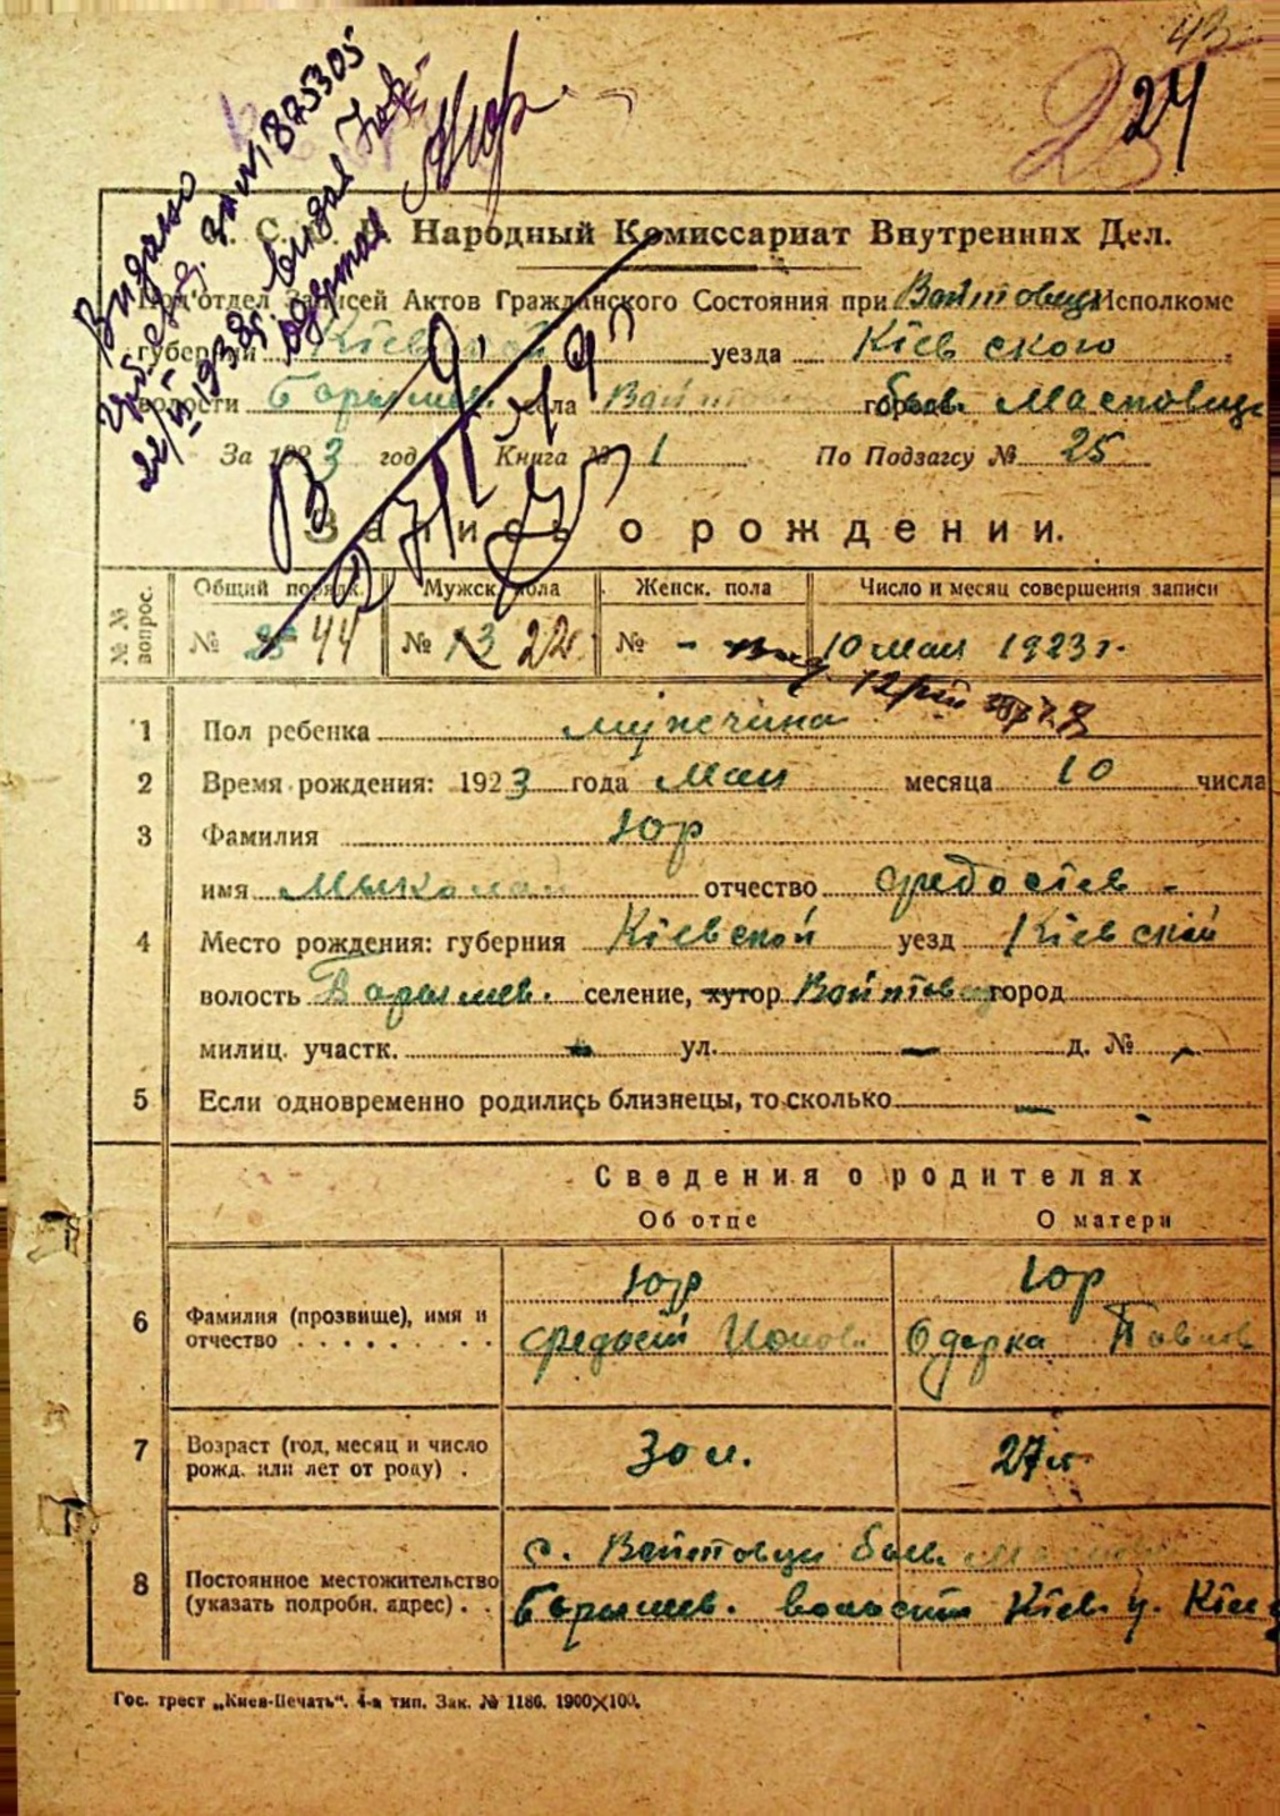 43
24
Видано
за №1875305
22/VI 1938р. видав Юр
Юр
С. С. Народный Комиссариат Внутренних Дел.
Под'отдел Записей Актов Гражданского Состояния при Войтовцы Исполкоме
губернии Кіевской уезда Кіевского
волости Барышев. села Войтов города быв. Масковцы
За 1923 год Книга № 1 По Подзагсу № 25
Запись о рождении.
№ № вопрос. Общий порядк. Мужск. пола Женск. пола Число и месяц совершения записи
№ 25 44 № 13 22 № - 10 мая 1923 г.
1 Пол ребенка мужчина
2 Время рождения: 1923 года Мая месяца 10 числа
3 Фамилия Юр
имя Мыколай отчество Федосіев
4 Место рождения: губерния Кіевской уезд Кіевский
волость Барышев. селение, хутор Войтовцы город
милиц. участк. — ул. — д. № —
5 Если одновременно родились близнецы, то сколько —
Сведения о родителях
Об отце О матери
Юр Юр
6 Фамилия (прозвище), имя и
отчество Федосій Ионов Одарка Павлов
7 Возраст (год, месяц и число
рожд. или лет от роду) . 30 л. 27 л.
с. Войтовцы быв.
8 Постоянное местожительство
(указать подробн. адрес) . . Барышев. волости Кіев. у. Кіев
Гос. трест „Киев-Печать“. 4-а тип. Зак. № 1186. 1900×100.